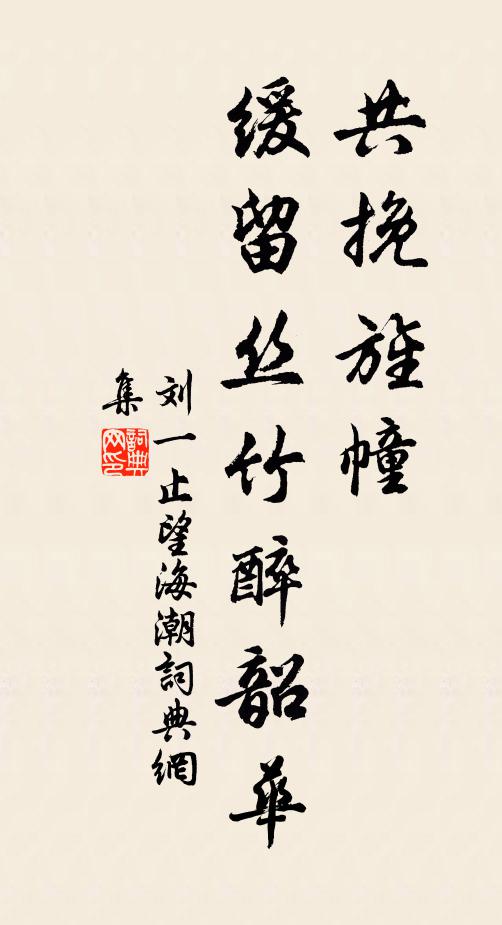 共挽旌幢
缓留丝竹醉韶華
刘一止望海潮詞典網
集
詞典
网印